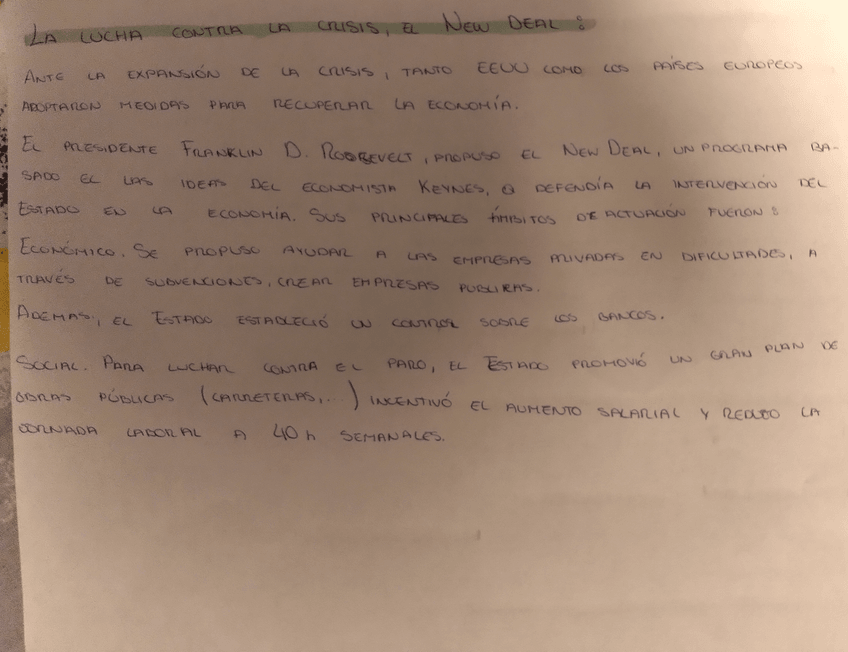 LA LUCHA CONTRA LA CRISIS, EL NEW DEAL:
ANTE LA EXPANSIÓN DE LA CRISIS, TANTO EEUU COMO LOS PAÍSES EUROPEOS
ADOPTARON MEDIDAS PARA RECUPERAR LA ECONOMÍA.
EL PRESIDENTE FRANKLIN D. ROOSEVELT, PROPUSO EL NEW DEAL, UN PROGRAMA BA-
SADO EL LAS IDEAS DEL ECONOMISTA KEYNES, Q DEFENDÍA LA INTERVENCIÓN DEL
ESTADO EN LA ECONOMÍA. SUS PRINCIPALES ÁMBITOS DE ACTUACIÓN FUERON:
ECONÓMICO. SE PROPUSO AYUDAR A LAS EMPRESAS PRIVADAS EN DIFICULTADES, A
TRAVÉS DE SUBVENCIONES, CREAR EMPRESAS PUBLICAS.
ADEMAS, EL ESTADO ESTABLECIÓ UN CONTROL SOBRE LOS BANCOS.
SOCIAL. PARA LUCHAR CONTRA EL PARO, EL ESTADO PROMOVIÓ UN GRAN PLAN DE
OBRAS PÚBLICAS (CARRETERAS,...) INCENTIVÓ EL AUMENTO SALARIAL Y REDUJO LA
JORNADA LABORAL A 40 h SEMANALES.